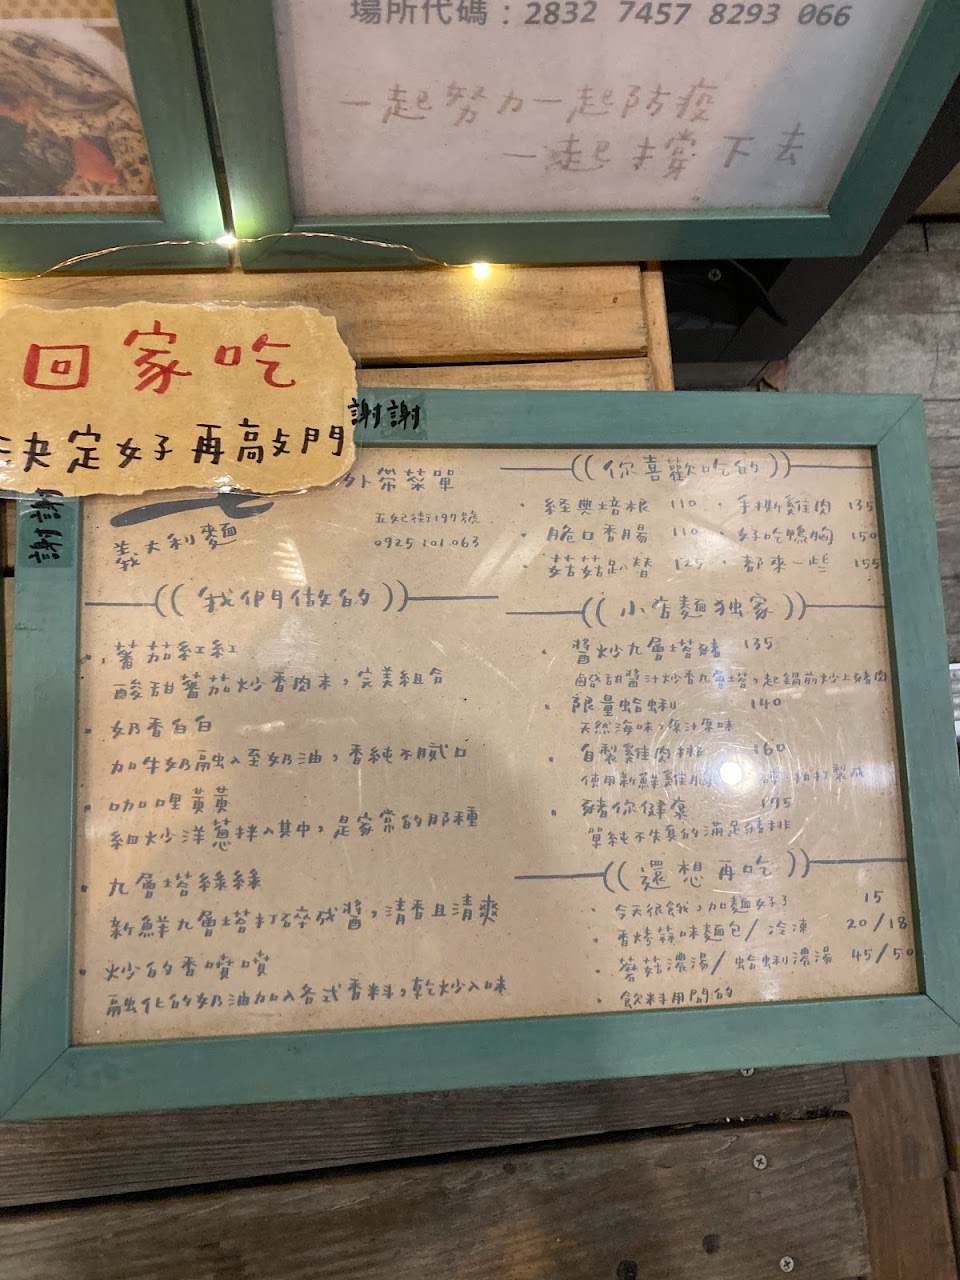 場所代碼：2832 7457 8293 066
一起努力一起防疫
一起撐下去
回家吃
決定好再敲門
謝謝
謝謝
義大利麵
外帶菜單
五妃街197號
0925.101.063
((我們做的))
·蕃茄紅紅
酸甜蕃茄炒香肉末，完美組合
·奶香白白
加牛奶融入至奶油，香純不膩口
·咖哩黃黃
細炒洋蔥拌入其中，是家常的那種
·九層塔綠綠
新鮮九層塔打碎成醬，清香且清爽
·炒的香噴噴
融化的奶油加入各式香料，乾炒入味
((你喜歡吃的))
·經典培根 110 ·手撕雞肉 135
·脆口香腸 110 ·好吃鴨胸 150
·菇菇趴替 125 ·都來一些 155
((小店麵独家))
·醬炒九層塔豬 135
酸甜醬汁炒香九層塔，起鍋前炒上豬肉
·限量蛤蜊 140
天然海味，原汁原味
·自製雞肉排 160
使用新鮮雞胸 拍打製成
·豬你健康 175
單純不失真的滿足豬排
((還想再吃))
·今天很餓，加麵好了 15
·香烤蒜味麵包/冷凍 20/18
·蘑菇濃湯/蛤蜊濃湯 45/50
·飲料用問的